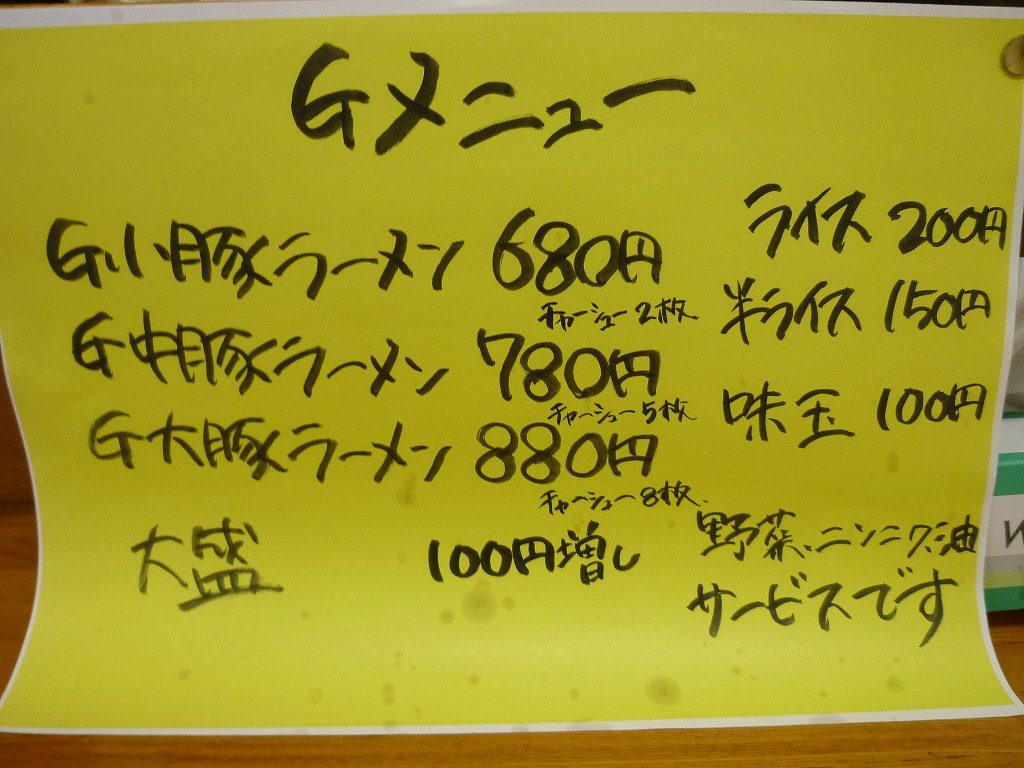 Gメニュー
G小豚ラーメン 680円
チャーシュー2枚
G中豚ラーメン 780円
チャーシュー5枚
G大豚ラーメン 880円
チャーシュー8枚
大盛 100円増し
ライス 200円
半ライス 150円
味玉 100円
野菜、ニンニク、油
サービスです
W